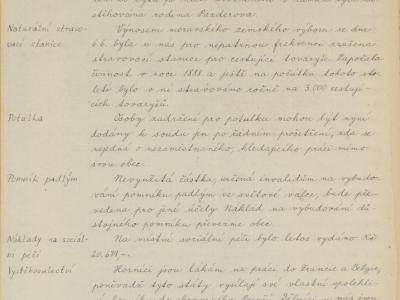 stihována rodina Pazderova.
Naturální stravo- Výnosem moravského zemského výboru ze dne
vací stanice 6.6. byla u nás pro nepatrnou frekvenci zrušena
stravovací stanice pro cestující tovaryše. Započala
činnost v roce 1888 a ještě na počátku tohoto sto-
letí bylo v ní stravováno ročně na 3.000 cestují-
cích tovaryšů.
Potulka Osoby zadržené pro potulku mohou být nyní
dodány k soudu jen po řádném prošetření, zda se
nejedná o nezaměstnaného, hledajícího práci mimo
svou obec.
Pomník padlým Nevyužitá částka, určená invalidům na vybudo-
vání pomníku padlým ve světové válce, bude pře-
vedena pro jiné účely. Náklad na vybudování dů-
stojného pomníku převezme obec.
Náklady na sociál- Na místní sociální péči bylo letos vydáno Kč
ní péči 20.699,-.
Vystěhovalectví Horníci jsou lákáni na práci do Francie a Belgie,
poněvadž tyto státy vysílají své vlastní